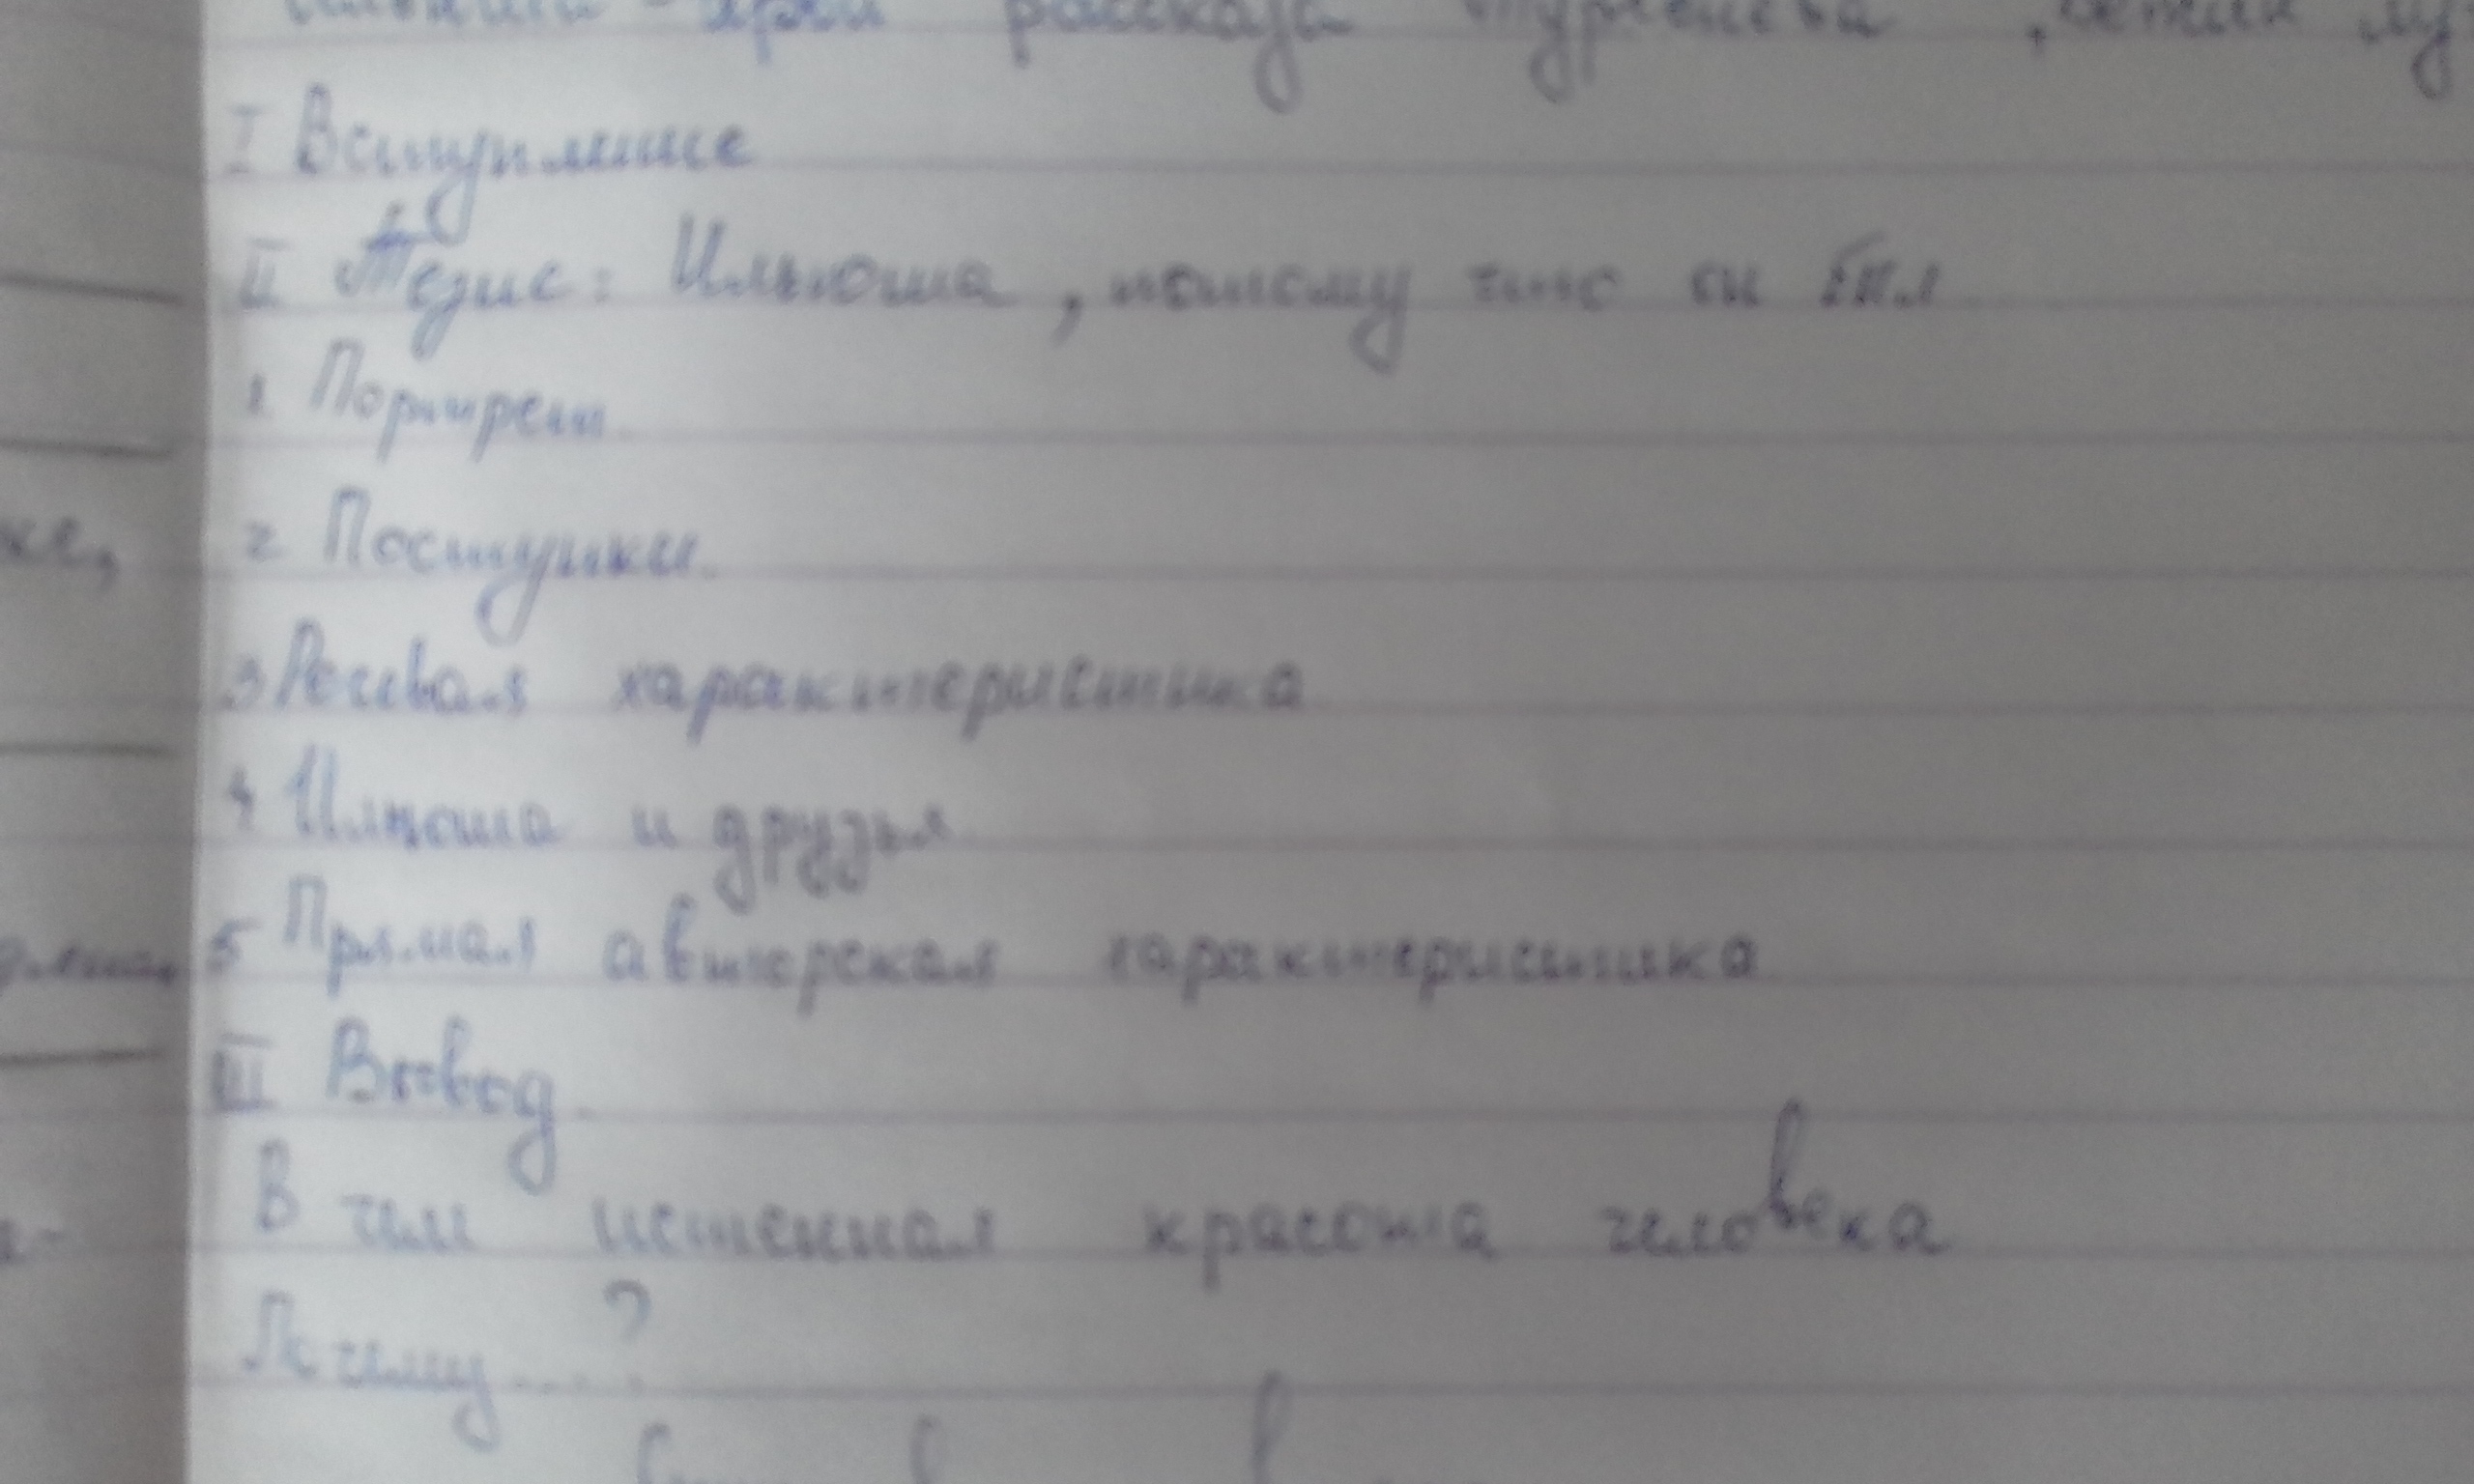 рассказа Тургенева
I Вступление
II Тезис: Ильюша, потому что он был
1 Портрет
2 Поступки.
3 Речевая характеристика
4 Илюша и друзья
5 Прямая авторская характеристика
III Вывод.
В чем истенная красота человека
Почему....?